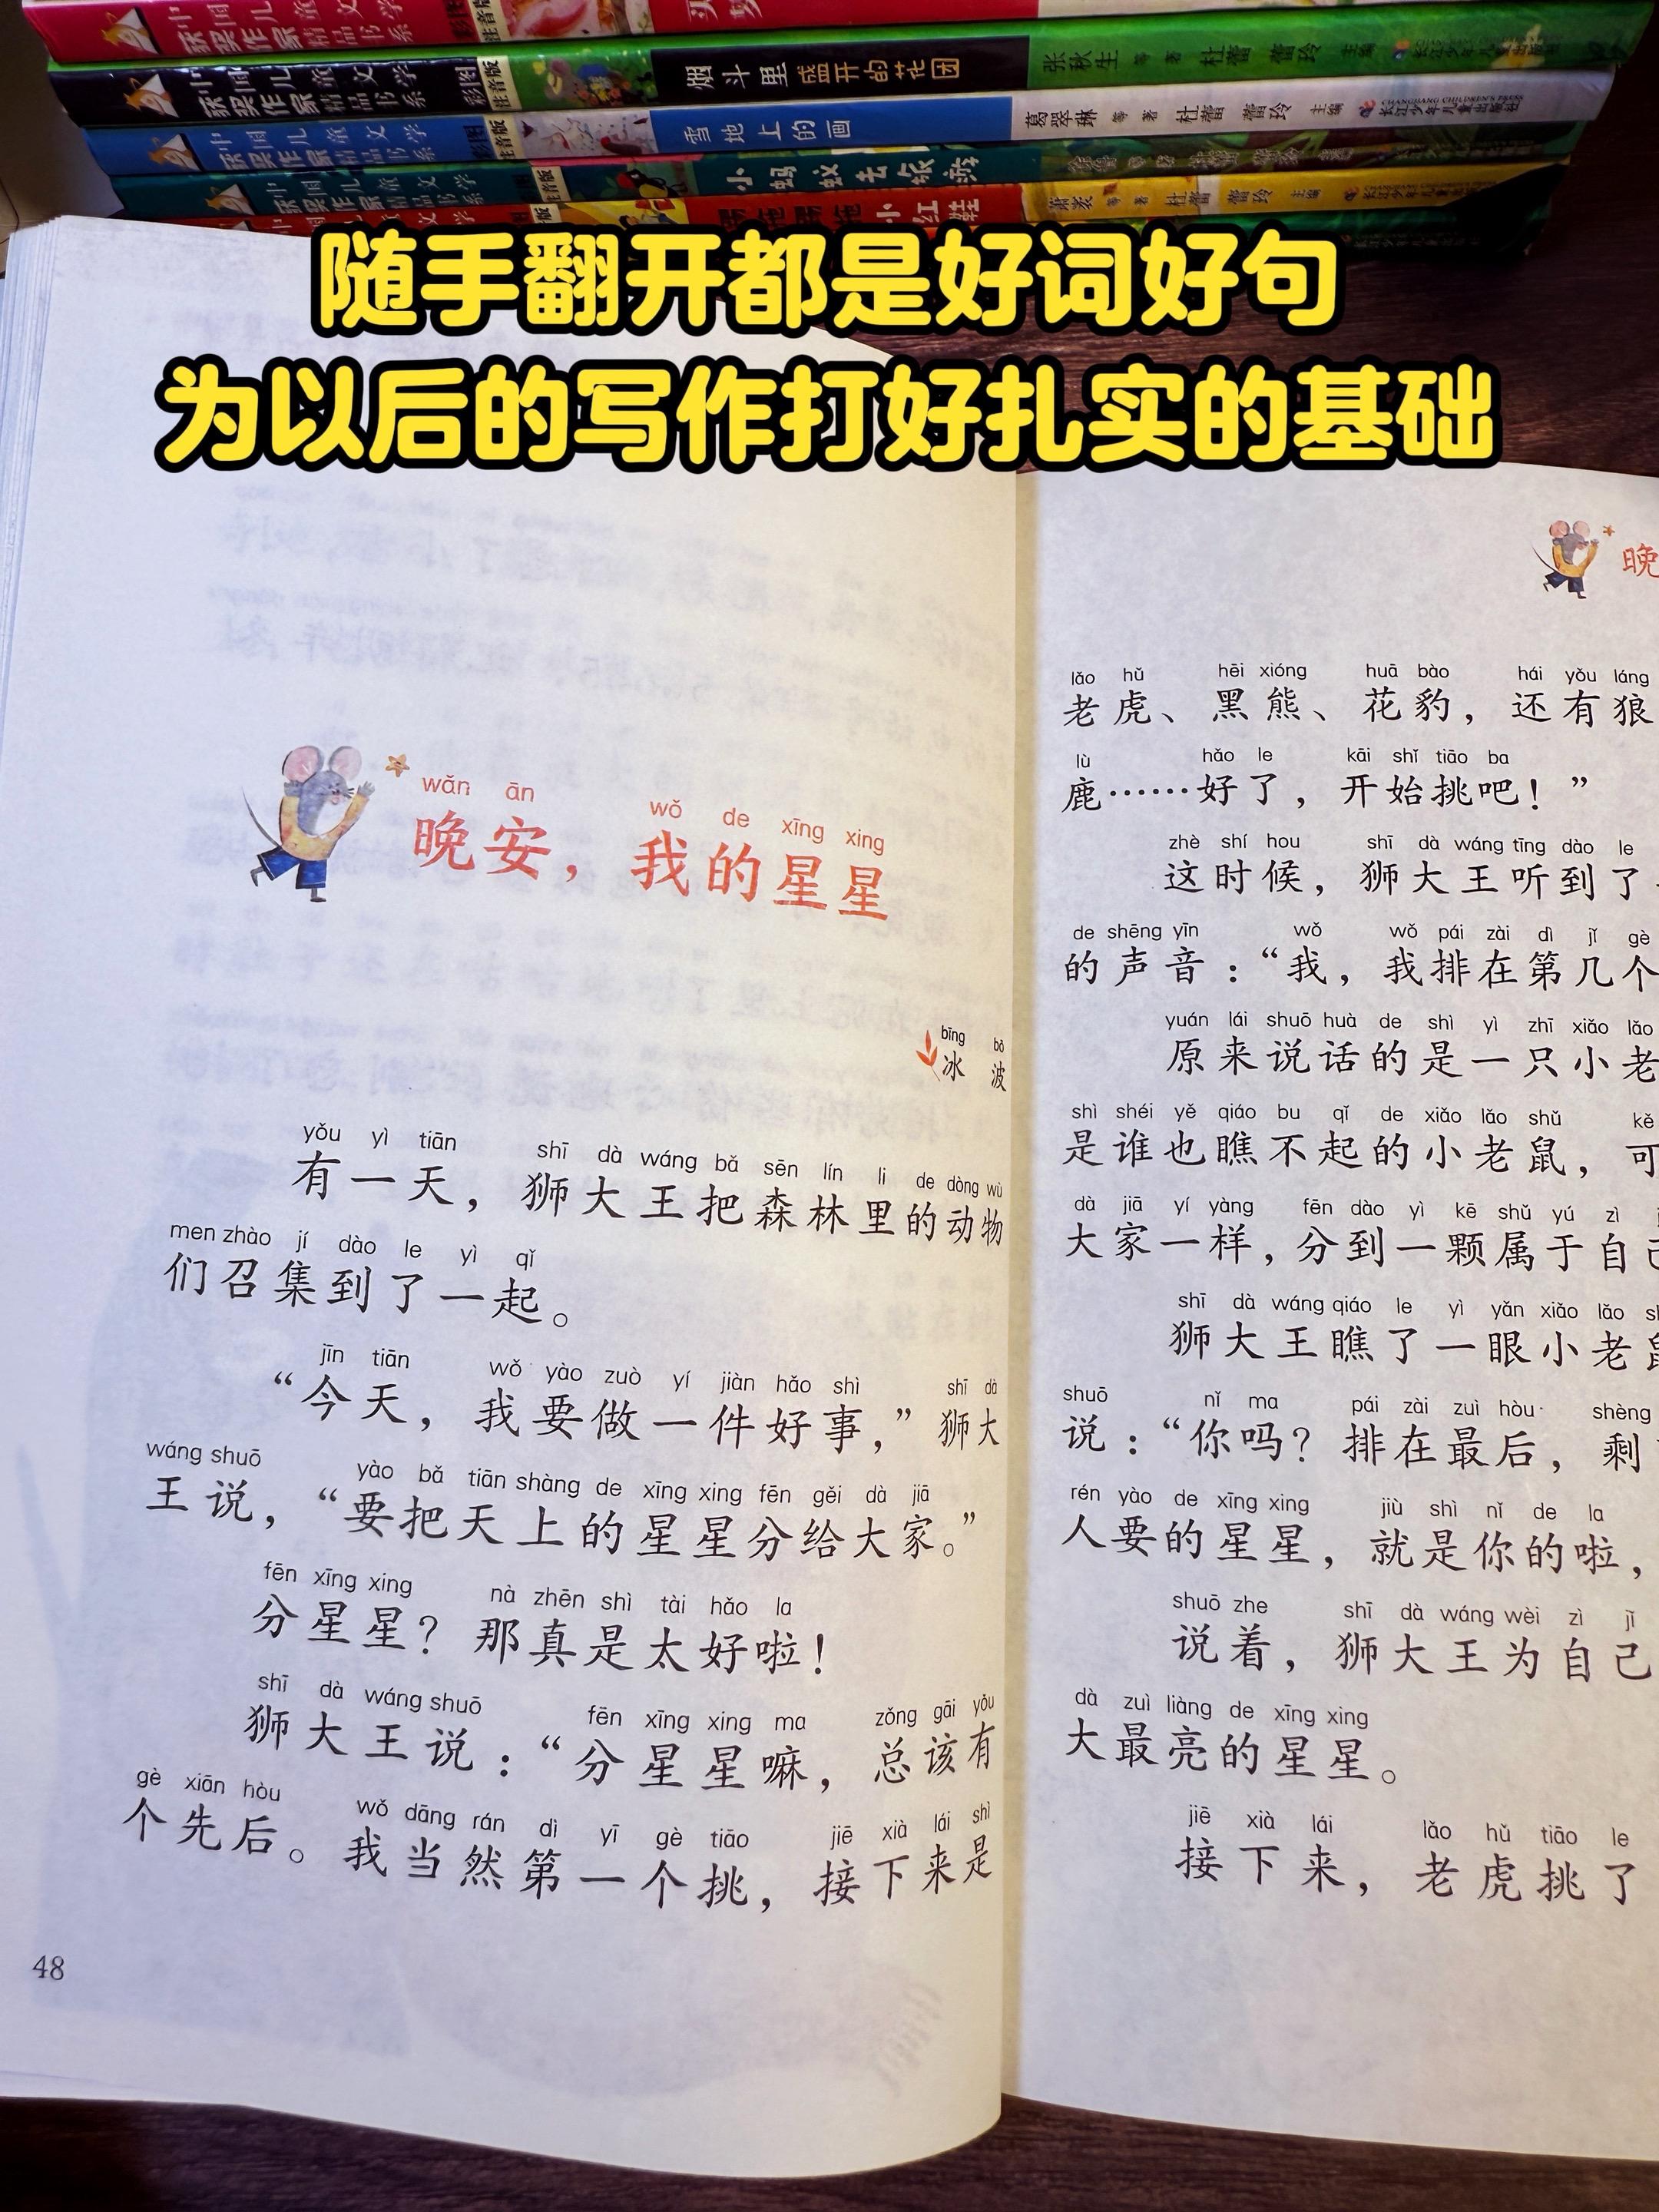 中国儿童文学
获奖作家精品书系
注音版
中国儿童文学
获奖作家精品书系
彩图
注音版
烟斗里盛开的花团
张秋生 等 著 杜蕾 蕾玲 主编
长江少年儿童出版社
中国儿童文学
获奖作家精品书系
彩图
注音版
雪地上的画
葛翠琳 等 著 杜蕾 蕾玲 主编
CHANGJIANG CHILDREN'S PRESS
长江少年儿童出版社
中国儿童文学
获奖作家精品书系
注音版
小蚂蚁去旅游
中国儿童文学
图
音版
踢拖踢拖小红鞋
萧袤 等 著 杜蕾 蕾玲 主编
随手翻开都是好词好句
为以后的写作打好扎实的基础
wǎn ān wǒ de xīng xing
晚安，我的星星
bīng bō
冰 波
yǒu yì tiān shī dà wáng bǎ sēn lín li de dòng wù
有一天，狮大王把森林里的动物
men zhào jí dào le yì qǐ
们召集到了一起。
jīn tiān wǒ yào zuò yí jiàn hǎo shì shī dà
“今天，我要做一件好事，”狮大
wáng shuō yào bǎ tiān shàng de xīng xing fēn gěi dà jiā
王说，“要把天上的星星分给大家。”
fēn xīng xing nà zhēn shì tài hǎo la
分星星？那真是太好啦！
shī dà wáng shuō fēn xīng xing ma zǒng gāi yǒu
狮大王说：“分星星嘛，总该有
gè xiān hòu wǒ dāng rán dì yī gè tiāo jiē xià lái shì
个先后。我当然第一个挑，接下来是
48
晚
lǎo hǔ hēi xióng huā bào hái yǒu láng
老虎、黑熊、花豹，还有狼
lù hǎo le kāi shǐ tiāo ba
鹿……好了，开始挑吧！”
zhè shí hou shī dà wáng tīng dào le
这时候，狮大王听到了
de shēng yīn wǒ wǒ pái zài dì jǐ gè
的声音：“我，我排在第几个
yuán lái shuō huà de shì yì zhī xiǎo lǎo
原来说话的是一只小老
shì shéi yě qiáo bu qǐ de xiǎo lǎo shǔ kě
是谁也瞧不起的小老鼠，可
dà jiā yí yàng fēn dào yì kē shǔ yú zì
大家一样，分到一颗属于自己
shī dà wáng qiáo le yì yǎn xiǎo lǎo
狮大王瞧了一眼小老鼠
shuō nǐ ma pái zài zuì hòu shèng
说：“你吗？排在最后，剩
rén yào de xīng xing jiù shì nǐ de la
人要的星星，就是你的啦，
shuō zhe shī dà wáng wèi zì jǐ
说着，狮大王为自己
dà zuì liàng de xīng xing
大最亮的星星。
jiē xià lái lǎo hǔ tiāo le
接下来，老虎挑了